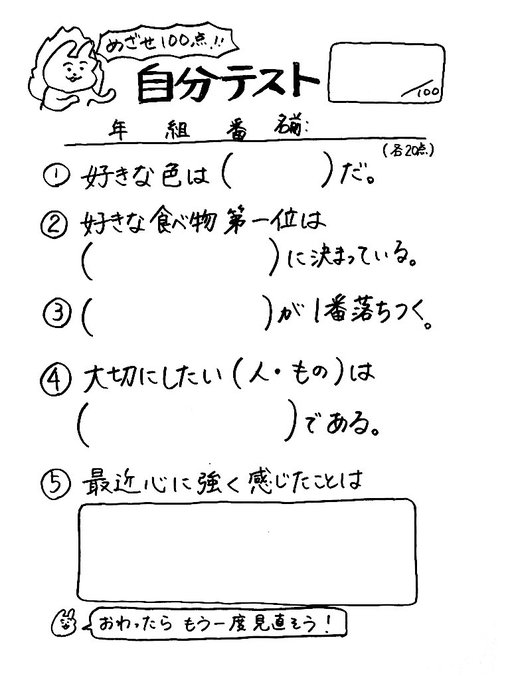 めざせ100点!!
自分テスト
/100
年 組 番 名前:
(各20点)
① 好きな色は( )だ。
② 好きな食べ物 第一位は
( )に決まっている。
③( )が1番落ちつく。
④ 大切にしたい(人・もの)は
( )である。
⑤ 最近心に強く感じたことは
おわったら もう一度見直そう!